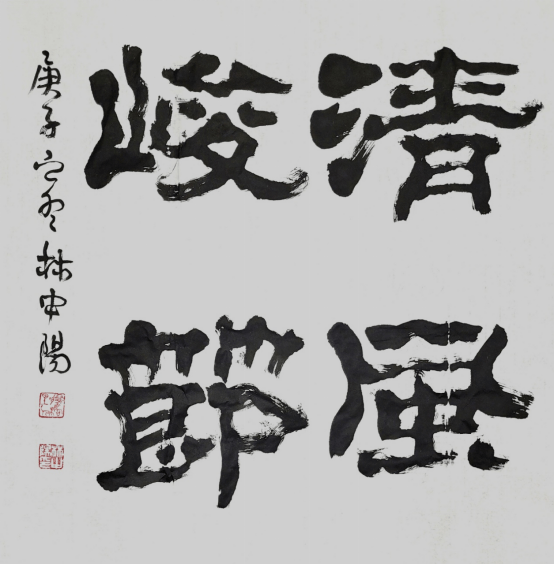 清風
峻節
庚子之 林中陽